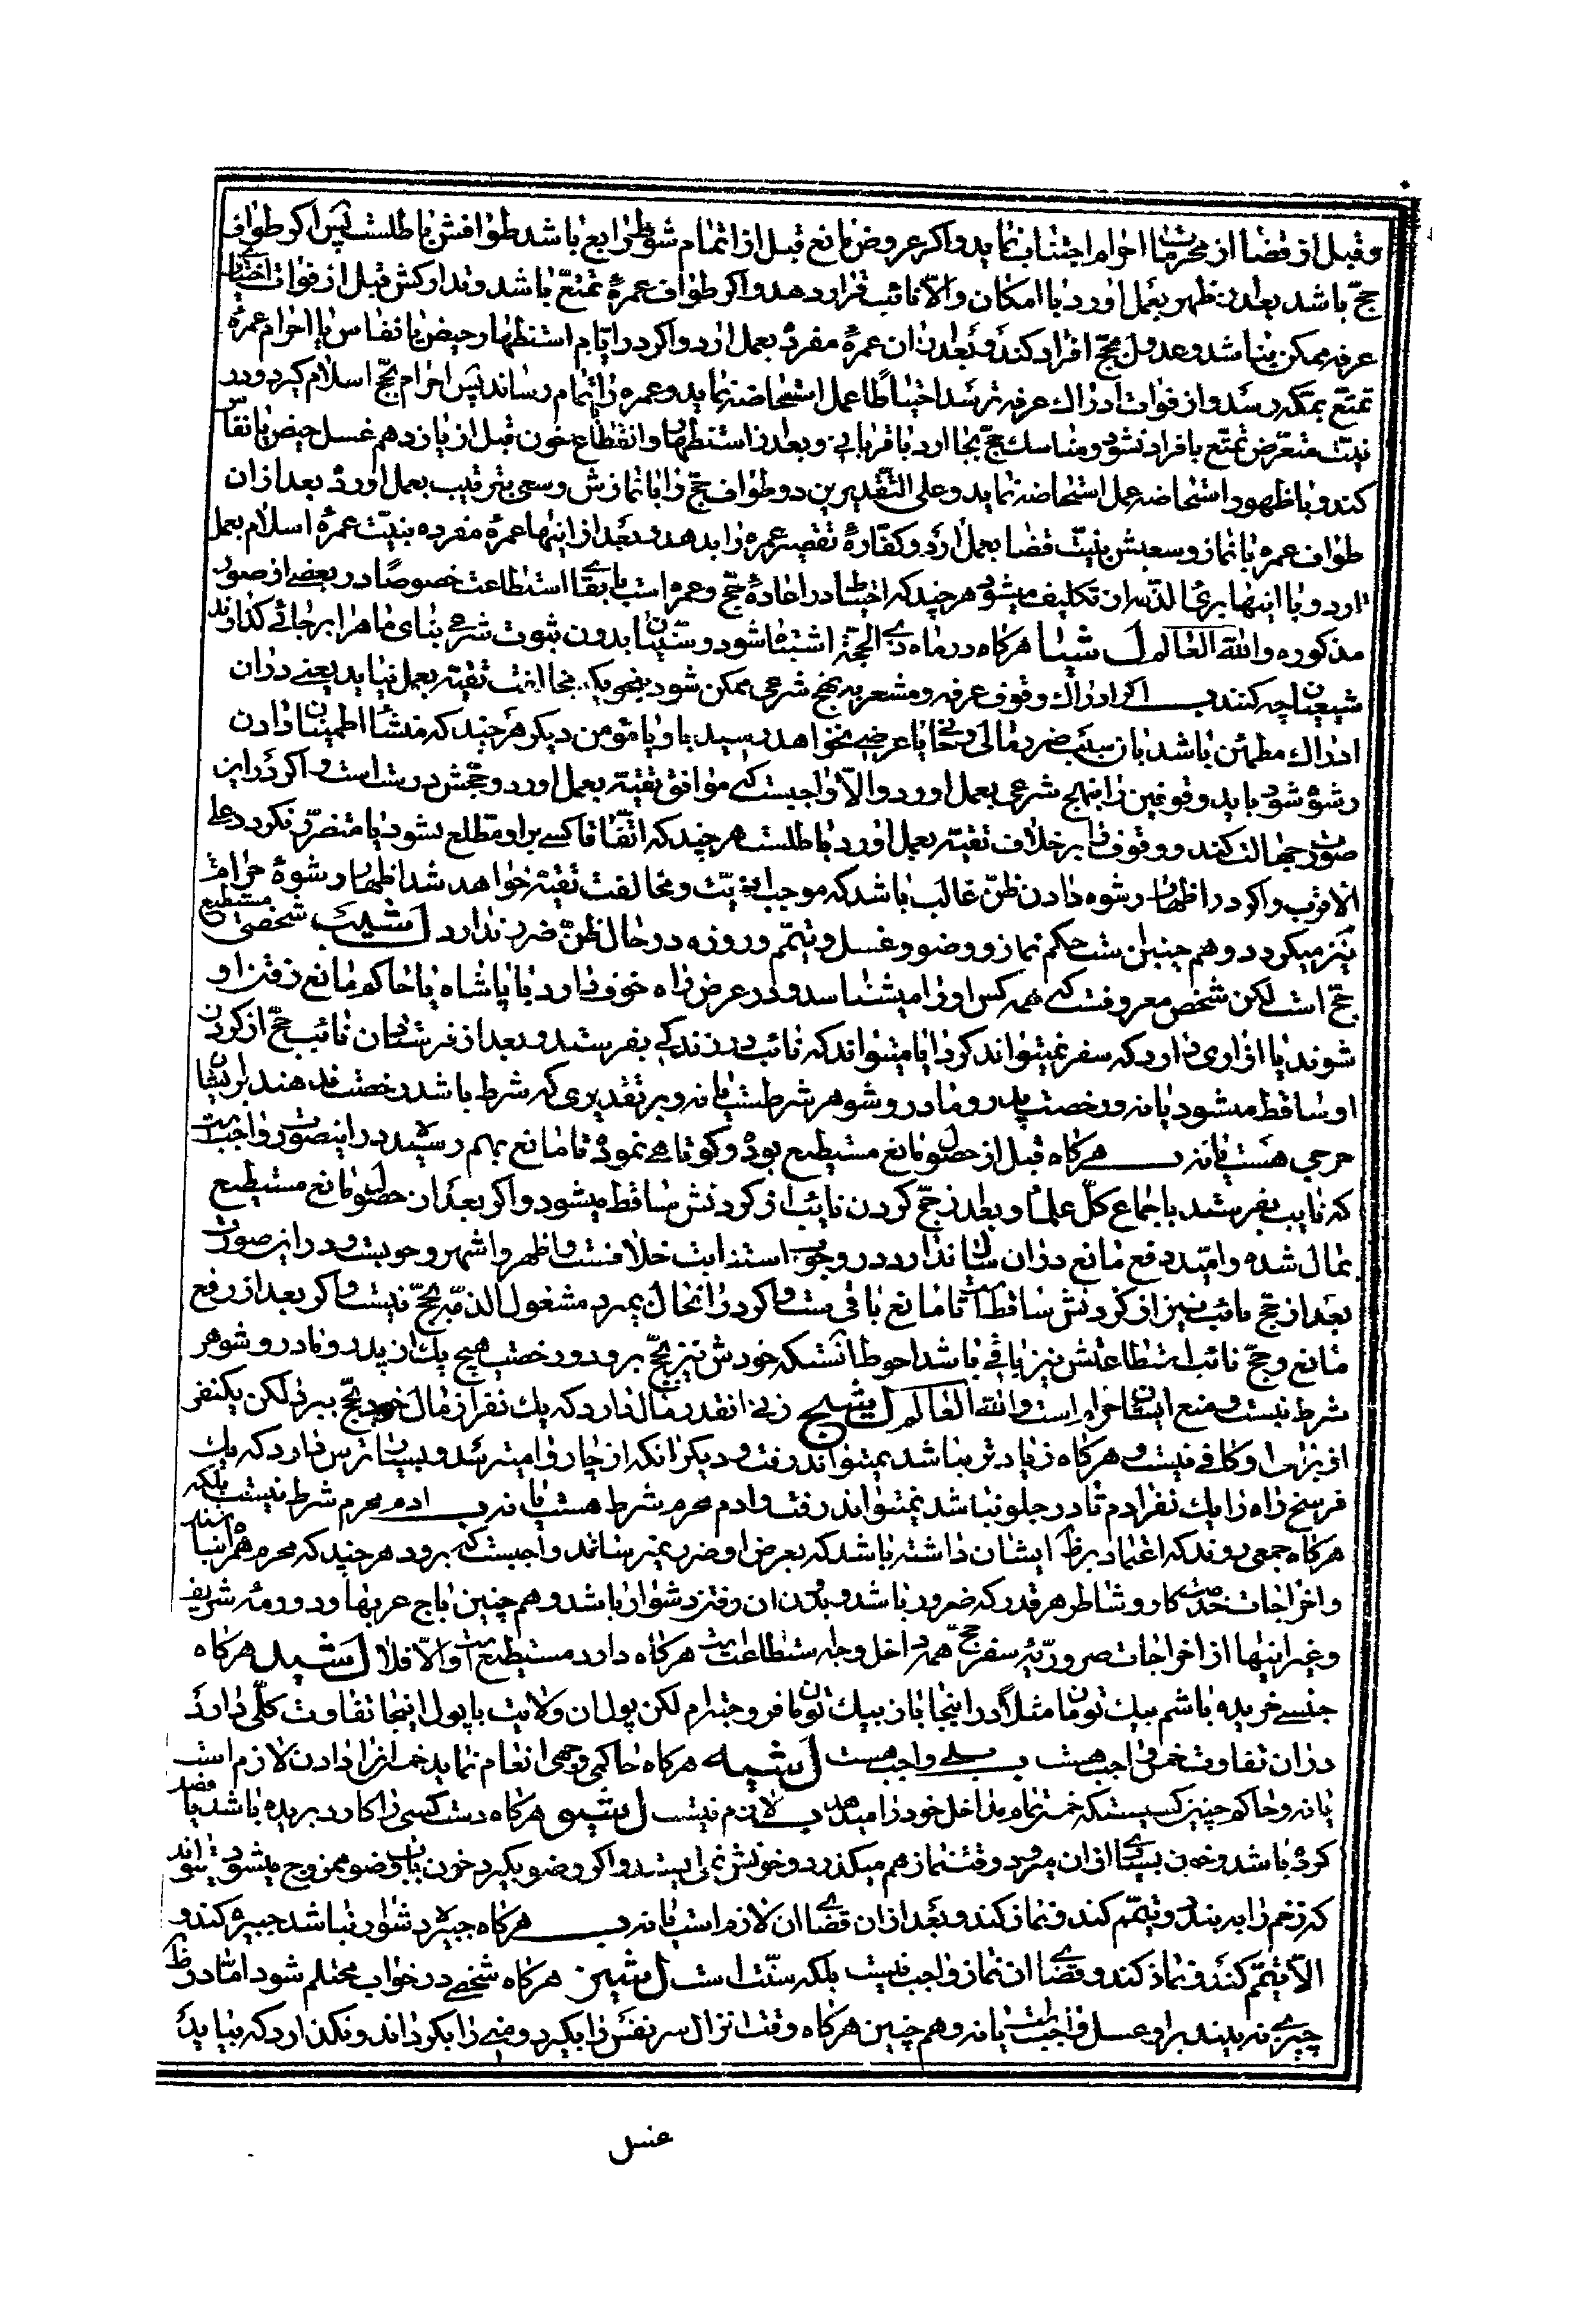 و قبل از قضا از محرمات احرام اجتناب نماید و اکر عروض مانع قبل از اتمام شوط رابع باشد طوافش باطلست پس اکر طواف
حجّ باشد بعد از طهر بعمل اورد با امکان و الّا نائب قرار دهد و اکر طواف عمرهٔ تمتّع باشد و تدارکش قبل از فوات
عرفه ممکن نباشد و عدول بحجّ افراد کند و بعد از ان عمرهٔ مفرده بعمل ارد و اکر در ایّام استظهار حیض یا نفاس با احرام عمرهٔ
تمتع بمکه رسد و از فوات ادراك عرفه ترسد احتیاطًا عمل استحاضه نماید و عمره را تمام رساند پس احرام بحجّ اسلام کیرد و در
نیّت متعرّض تمتّع یا افراد نشود و مناسك حجّ بجا ارد با قربانی و بعد از استظهار و انقطاع خون قبل از یازدهم غسل حیض یا نفاس
کند و با ظهور استحاضه عمل استحاضه نماید و علی التّقدیرین دو طواف حجّ را با نمازش و سعی بترتیب بعمل اورد بعد از ان
طواف عمره با نماز و سعیش بنیّت قضا بعمل ارد و کفّارهٔ تقصیر عمره را بدهد و بعد از اینها عمرهٔ مفرده بنیّت عمرهٔ اسلام بعمل
ارد و با اینها برئ الذّمه از تکلیف میشود هر چند که احتیاط در اعادهٔ حجّ و عمره است با بقای استطاعت خصوصًا در بعضی از صور
مذکوره و اللّه العالم ل شینا هرکاه در ماه ذی الحجّة اشتباه شود و سنّیان بدون ثبوت شرعی بنای ماه را بر جائی کذارند
شیعیان چه کنند ب اکر ادراك وقوف عرفه و مشعر به نهج شرعی ممکن شود بنحویکه مخالفت تقیّه بعمل نیاید یعنی در ان
ادراك مطمئن باشد بان سبب ضرر مالی و جانی یا عرضی نخواهد رسید باو یا مؤمن دیکر هر چند که منشأ اطمینان دادن
رشوه شود باید وقوفین را بنهج شرعی بعمل اورد و الّا واجبست که موافق تقیّه بعمل اورد و حجّش درست است و اکر در این
صورت جهالت کند و وقوف را بر خلاف تقیّه بعمل اورد باطلست هر چند که اتّفاقا کسی بر او مطّلع نشود یا متضرّر نکردد علی
الاقرب و اکر در اظهار رشوه دادن ظنّ غالب باشد که موجب اذیّت و مخالفت تقیّه خواهد شد اظهار رشوهٔ حرام
نیز میکردد و هم چنین است حکم نماز و وضو و غسل و تیمّم و روزه در حال ظنّ ضرر ندارد ل شینب شخصی مستطیع
حجّ است لکن شخص معروفست که همه کس او را میشناسد و در عرض راه خوف دارد یا پاشاه یا حاکم مانع رفتن او
شوند یا ازاری دارد که سفر نمیتواند کرد ایا میتواند که نائب در زندکی بفرستد و بعد از فرستادن نائب حجّ از کردن
او ساقط میشود یا نه و رخصت پدر و مادر و شوهر شرطست یا نه و بر تقدیری که شرط باشد رخصت ندهند بر ایشان
حرجی هست یا نه ب هرکاه قبل از حصول مانع مستطیع بوده و کوتاهی نموده تا مانع بهم رسیده در اینصورت واجبست
که نایب بفرستد باجماع کلّ علما و بعد از حجّ کردن نایب از کردنش ساقط میشود و اکر بعد از حصول مانع مستطیع
بمال شده و امّید دفع مانع در ان سال ندارد در وجوب استنابت خلافست و اظهر و اشهر وجوبست و در این صورت
بعد از حجّ نائب نیز از کردنش ساقط است تا مانع باقیست و اکر در انحال بمیرد مشغول الذمّه بحجّ نیست و اکر بعد از رفع
مانع و حجّ نائب استطاعتش نیز باقی باشد احوط انستکه خودش نیز بحجّ برود و رخصت هیچ یك از پدر و مادر و شوهر
شرط نیست و منع ایشان حرام است و اللّه العالم ل شینج زنی انقدر مال دارد که یك نفر از مال خود بحجّ ببرد لکن یکنفر
از برای او کافی نیست و هرکاه زیادتر نباشد نمیتواند رفت و دیکر انکه از چاروا میترسد و بسیار ترس دارد که یك
فرسخ راه را یك نفر ادم تا در جلو نباشد نمیتواند رفت و ادم محرم شرط هست یا نه ب ادم محرم شرط نیست بلکه
هرکاه جمعی روند که اعتماد بر ایشان داشته باشد که بعرض او ضرر نمیرسانند واجبست که برود هر چند که محرم همراه نباشد
و اخراجات خدمتکار و شاطر هر قدر که ضرور باشد و بدون ان رفتن دشوار باشد و هم چنین باج عربها و دورومهٔ شریف
و غیر اینها از اخراجات ضروریّهٔ سفر حجّ همه داخل وجه استطاعت است هرکاه دارد مستطیع است و الّا فلا ل شیند هرکاه
جنسی خریده باشم بیك تومان مثلًا در اینجا باز بیك تومان فروختم لکن پول ان ولایت با پول اینجا تفاوت کلّی دارد
در ان تفاوت خمس واجب هست ب بلی واجب هست ل شینه هرکاه حاکمی وجهی انعام نماید خمس انرا دادن لازم است
یا نه و حاکم چنین کسیستکه خمس تمام مداخل خود را میدهد ب لازم نیست ل شینو هرکاه دست کسی را کارد بریده باشد یا فصد
کرده باشد و خون بسیاری از ان میرود و وقت نماز هم میکذرد و خونش نمی ایستد و اکر وضو بکیرد خون باب وضو ممزوج میشود میتواند
که زخم را ببندد و تیمّم کند و نماز کند و بعد از ان قضای ان لازم است یا نه ب هرکاه جبیره دشوار نباشد جبیره کند و
الّا تیمّم کند و نماز کند و قضای ان نماز واجب نیست بلکه سنّت است ل شینز هرکاه شخصی در خواب محتلم شود امّا در
چیزی نه بیند بر او غسل واجبست یا نه و هم چنین هرکاه وقت انزال سر نفس را بکیرد و منی را بکرداند و نکذارد که بیاید
غسل